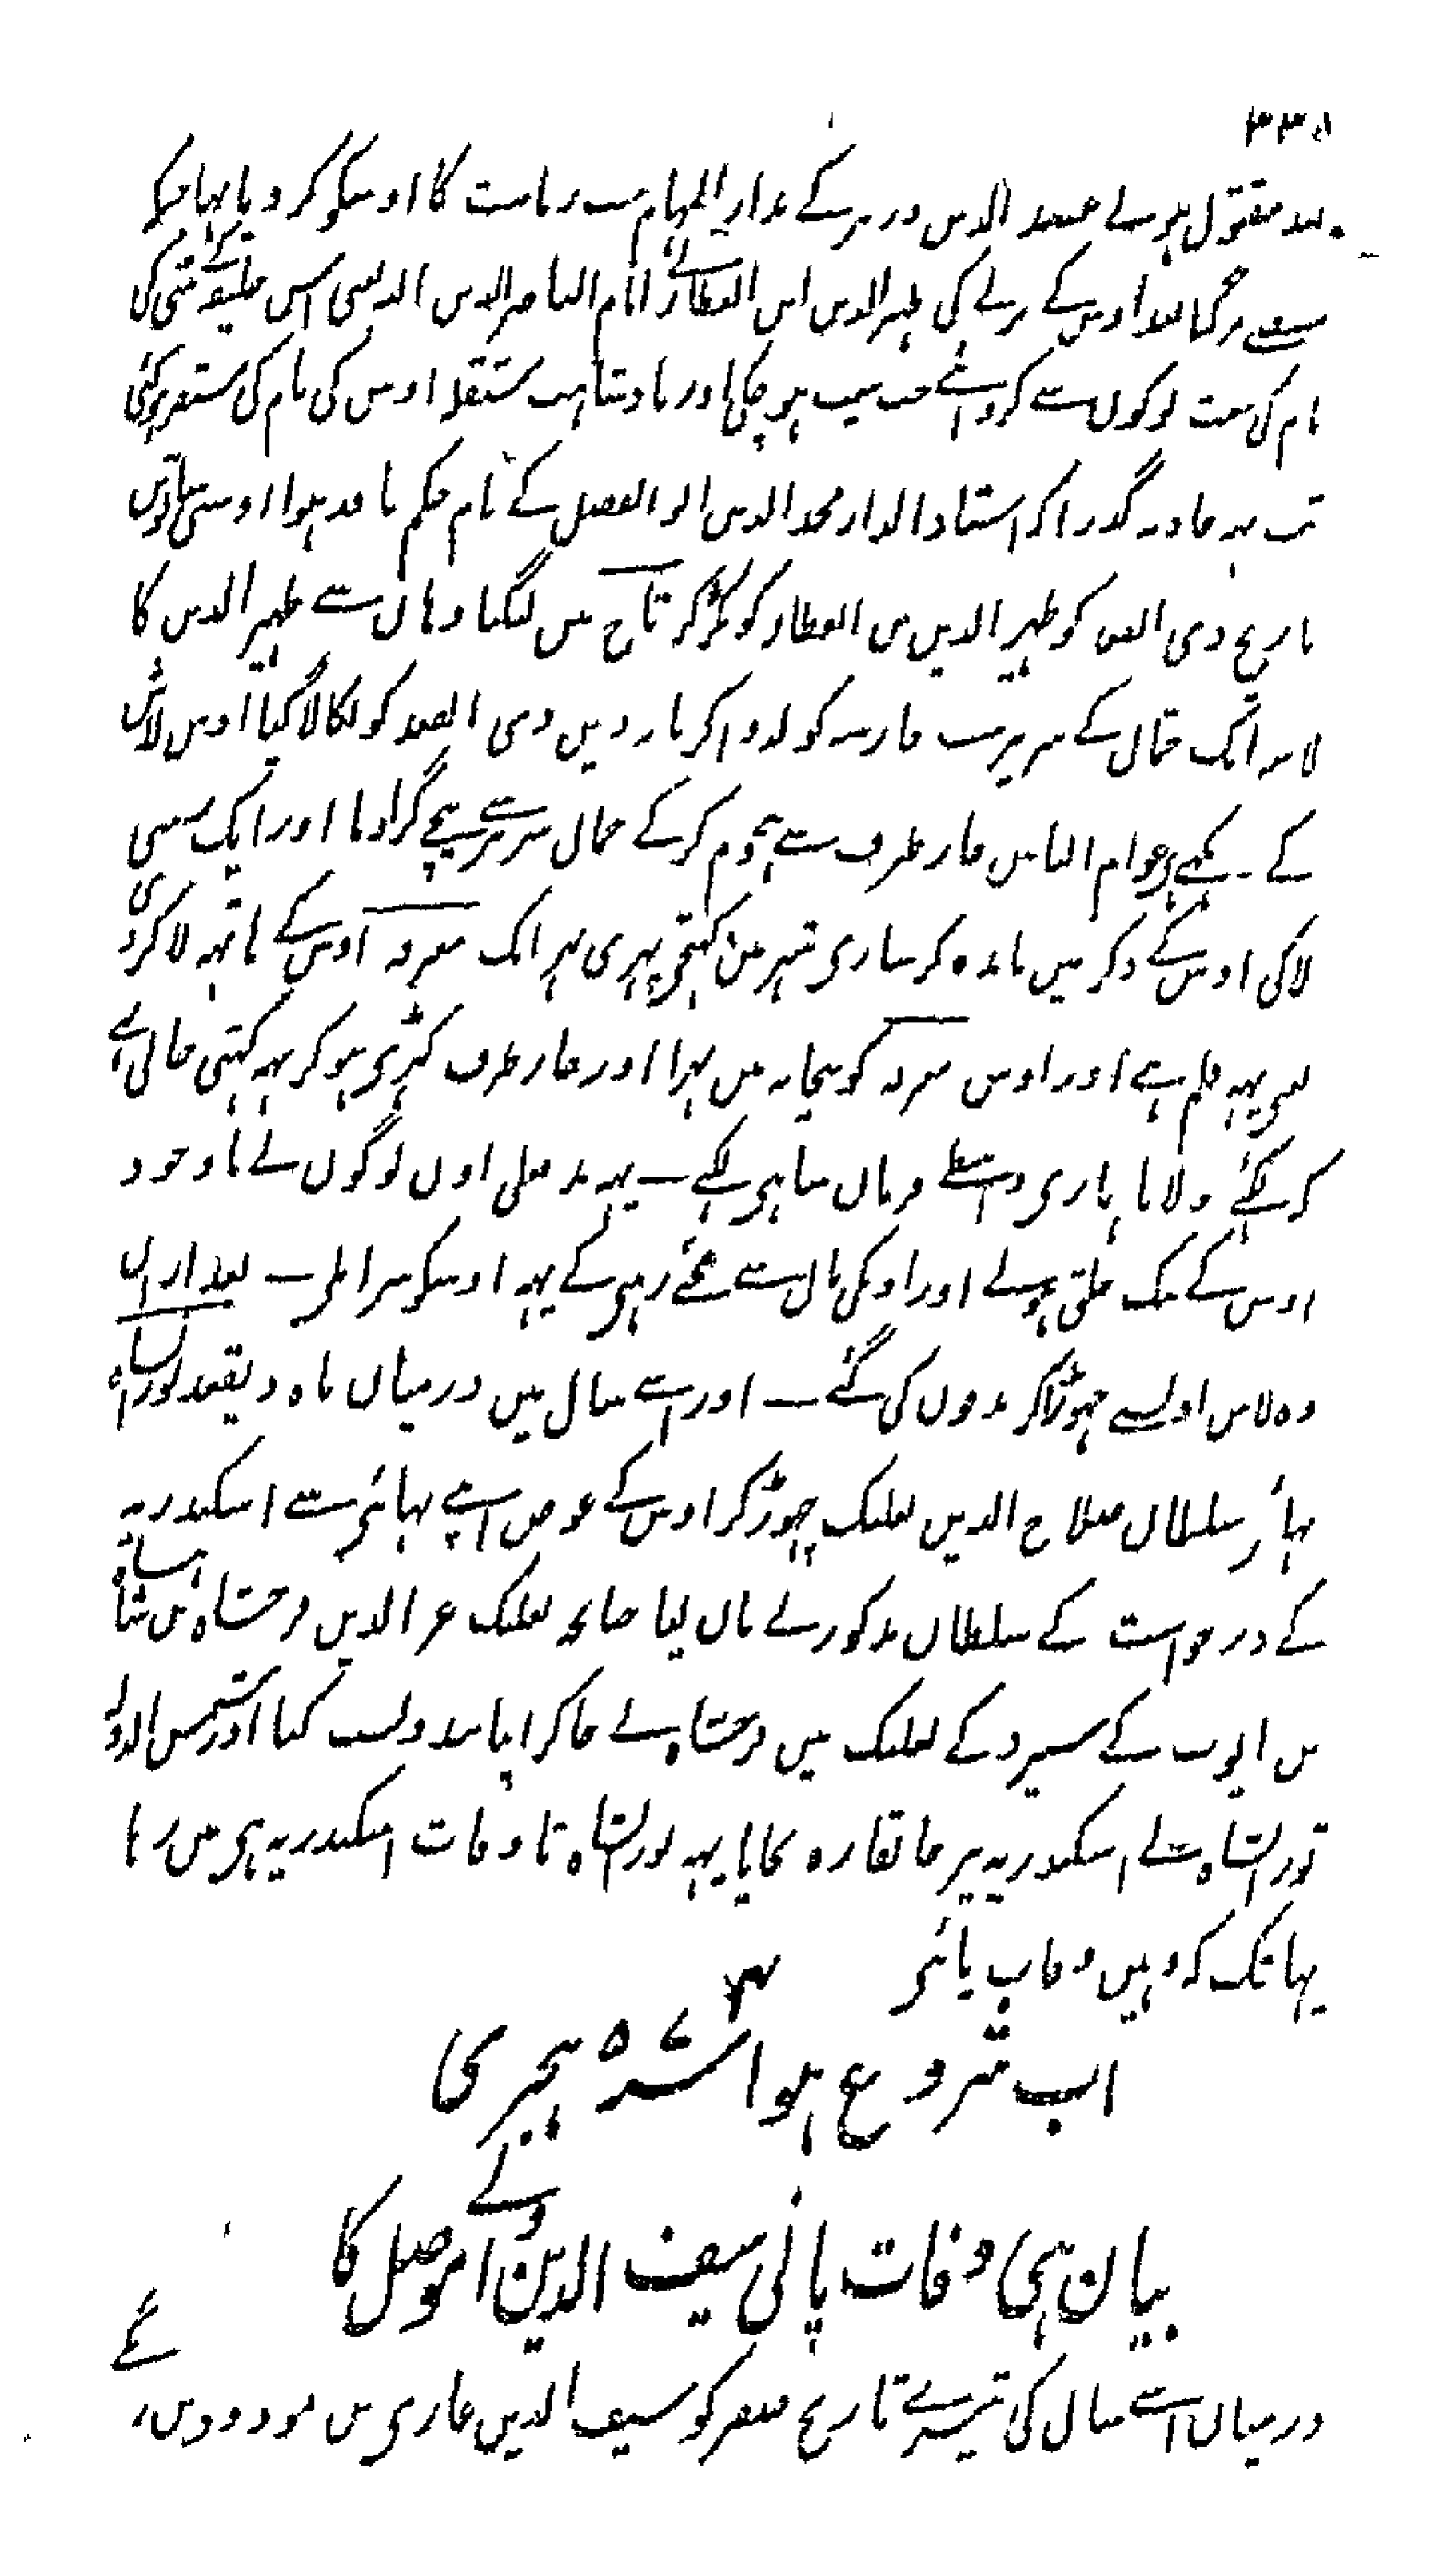 ۳۳۵
بعد مقتول ہونے عضد الدین وزیر کے مدار المہام سب ریاست کا اوسکو کر دیا تہا جبکہ
مر گیا بعد اوس کے مرنے کی ظہیر الدین ابن العطار نے امام الناصر لدین اللہ اس خلیفہ کے
نام کی بیعت لوگوں سے کروائے جب بیعت ہو چکی اور بادشاہت مستقل اوس کی نام کی
تب یہ حادثہ گذرا کہ استاد الدار مجد الدین ابو الفضل کے نام حکم نافذ ہوا اوسی ساتویں
تاریخ ذی القعد کو ظہیر الدین بن العطار کو پکڑ کر تاج میں لیگیا وہاں سے ظہیر الدین کا
لاشہ ایک حمال کے سر پر کو لدوا کر بارویں ذی القعد کو نکالا گیا اوس لاش
کے عوام الناس چار طرف سے ہجوم کر کے حمال سر پر سے نیچے گرا دیا اور ایک رسی
لا کی اوس کے ذکر میں باندہ کر ساری شہر میں کہینچی پہری پہر ایک مغرفہ اوس کے ہاتہہ لا کر دی
یعنی یہہ قلم ہے اور اوس مغرفہ کو نجاسہ میں بہرا اور چار طرف کہڑی ہو کر یہہ کہتی جاتی تہے
کر کہئے مولانا ہماری واسطے فرمان شاہی لکہئے ـ یہہ بد فعلی اون لوگوں نے باوجود
اوس کے نیک خلق ہونے اور اونکی مال سے بچے رہنی کے یہہ اوسکو سزا ملی ـ بعد ازاں
وہ لاش اون سے چہوڑا کر مدفون کی گئے ـ اور اسے سال میں درمیان ماہ ذیقعد تورانشاہ
بہائی سلطان صلاح الدین بعلبک چہوڑ کر اوس کے عوض اپنے بہائی سے اسکندریہ
کے درخواست کے سلطان مذکور نے مان لیا چنانچہ بعلبک عز الدین فرخشاہ بن شاہنشاہ
بن ایوب کے سپرد کے بعلبک میں فرخشاہ نے جا کر اپنا بندوبست کیا اور شمس الدولہ
تورانشاہ نے اسکندریہ پر جا نقارہ بجایا یہہ تورانشاہ تا وفات اسکندریہ ہی میں رہا
یہانتک کہ وہیں وفات پائی
اب شروع ہوا سنہ ۵۷۶ ہجری
بیان ہی وفات پانی سیف الدین والے موصل کا
درمیان اسے سال کی تیسرے تاریخ صفر کو سیف الدین غازی بن مودود بن زنگے